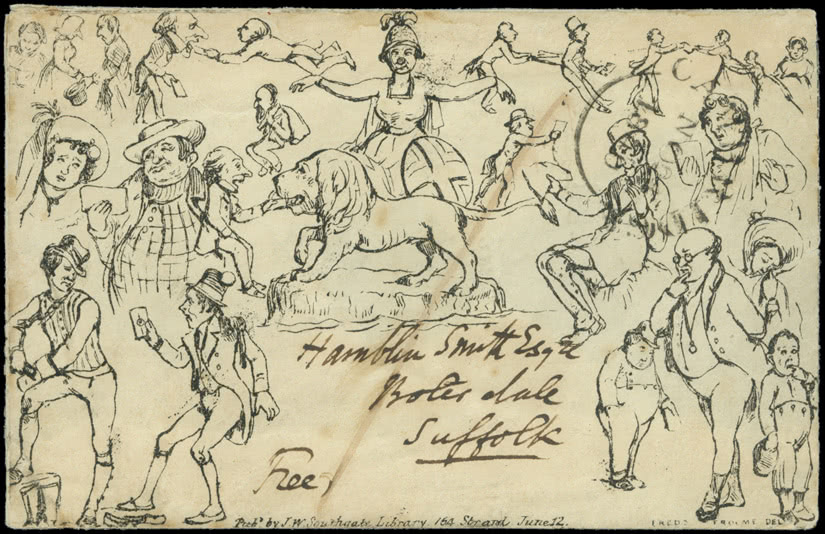 Hamblin Smith Esqre
Botesdale
Suffolk
Free
Pubd by J.W. Southgate, Library, 164 Strand June 12.